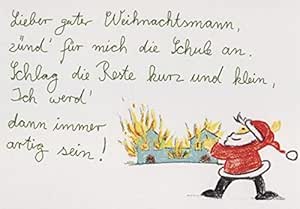 Lieber guter Weihnachtsmann,
zünd' für mich die Schule an.
Schlag die Reste kurz und klein,
Ich werd'
dann immer
artig sein!